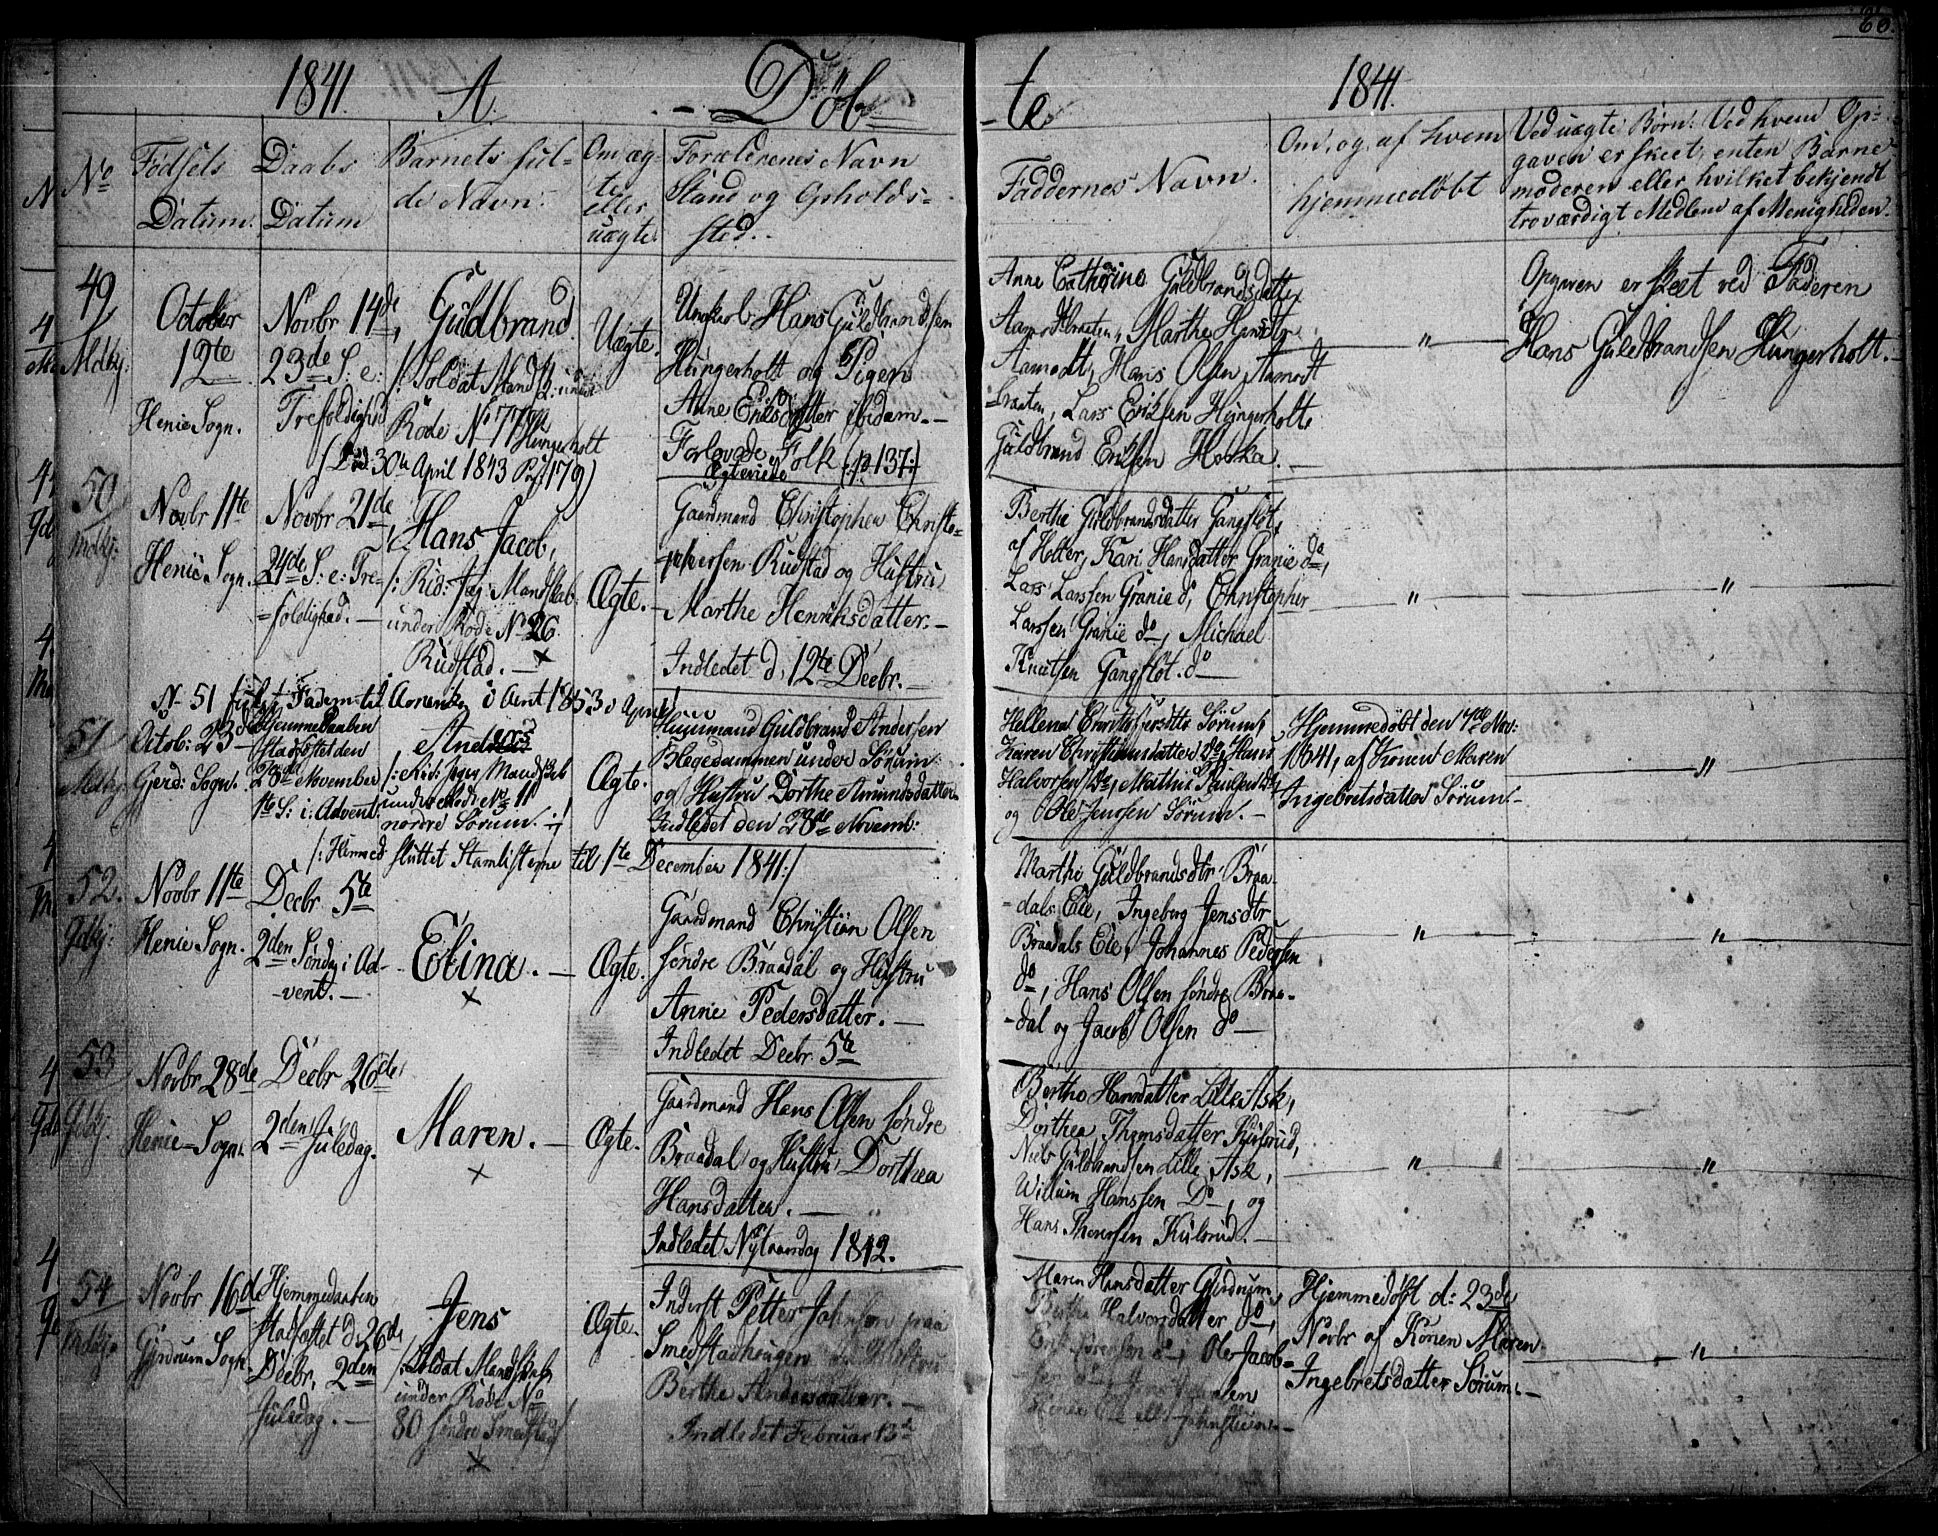 66.
1841. A. - Döb - te 1841.
No
Födsels Datum.
Daabs Datum
Barnets fulde Navn.
Om ægte eller uægte.
Forældrenes Navn Stand og Opholdssted.
Faddernes Navn.
Om, og af hvem hjemmedöbt
Ved uægte Börn: Ved hvem Opgaven er skeet, enten Barnemoderen eller hvilket bekjendt troværdigt Medlem af Menigheden.
49,
October 12te
Henie Sogn.
Novbr 14de, 23de S. e: Trefoldighed
Guldbrand
/: Soldat Mandsk: under Rode No 77
Hungerholt
(Död 30te April 1843 Pag: 179)
Uægte.
Ungkarl Hans Guldbrandsen
Hungerholt og Pigen
Anne Eriksdatter ibidem. -
Forlovede Folk (:p. 137:)
Ægteviede
Anne Cathrine Guldbrandsdatter
Aamodtbraaten, Marthe Hansdtr
Aamodt, Hans Olsen Aamodt
-braaten, Lars Eriksen Hungerholt,
Guldbrand Eriksen Hoska. -
"
Opgaven er skeet ved Faderen
Hans Guldbrandsen Hungerholt. -
50
Mdby:
Novbr 11te
Henie Sogn.
Novbr 21de,
24de S: e: Tre-
=foldighed. -
Hans Jacob,
/: Rid: Jæg: Mandskab
under Rode No 26
Rudstad. -
Ægte. -
Gaardmand Christopher Christo-
phersen Rudstad og Hustru
Marthe Henriksdatter. -
Indledet d. 12te Decbr. -
Berthe Guldbrandsdatter Gangflöt,
af Holter, Kari Hansdatter Granie do,
Lars Larssen Granie do, Christopher
Larssen Granie do, Michael
Knutsen Gangflöt. do
"
"
N. 51
51
Octob: 23de
Gjerd: Sogn.
Hjemmedaaben
stadfæstet den
28de November
1te S: i: Advent.
Andreas
/: Rid: Jæger Mandskab
under Rode No 11
nordre Sörum. :/
Ægte.
Huusmand Guldbrand Andersen
Blegedammen under Sörum
og Hustru Dorthe Amundsdatter
Indledet den 28de Novemb:
Karen Christiansdatter do, Hans
Halvorsen do,
og Ole Jenssen Sörum. -
Hjemmedöbt den 7de Nov:
1841, af Konen Maren
Ingebretsdatter Sörum. -
"
/: Hermed sluttet Stamlisterne til 1te December 1841 :/
52.
Gdby:
Novbr 11te
Henie Sogn.
Decbr 5te
2den Söndag i Ad-
-vent. -
Elina. -
Ægte.
Gaardmand Christian Olsen
söndre Braadal og Hustru
Anne Pedersdatter. -
Indledet Decbr 5te
Marthe Guldbrandsdtr Braa-
-dals Eie, Ingeborg Jensdtr
Braadals Eie, Johannes Pedersen
do, Hans Olsen söndre Braa-
-dal og Jacob Olsen do -
"
"
53
Gdby:
Novbr 28de
Henie Sogn.
Decbr 26de,
2den Juledag.
Maren. -
Ægte.
Gaardmand Hans Olsen söndre
Braadal og Hustru Dorthea
Hansdatter. -
Indledet Nytaarsdag 1842.
Berthe Hansdatter Lille Ask,
Dorthea Thomsdatter Kulsrud,
Niels Guldbrandsen Lille Ask,
Willum Hanssen Do, og
Hans Kulsrud. -
"
"
54
Novbr 16de
Gjerdrum Sogn.
Hjemmedaaben
stadfæstet d. 26de
Decbr, 2den
Juledag. -
Jens
/: Soldat Mandskab
under Rode No
80 söndre Smedstad
Ægte.
Inderst Petter Johnsen paa
Smedstadhaugen og Hustru
Berthe Andersdatter. -
Indledet Februar 13de
Maren Hansdatter Gjerdrum,
Berthe Halvorsdatter do,
Ole Jacob-
Hjemmedöbt d: 23de
Novbr af Konen Maren
Ingebretsdatter Sörum. -
"